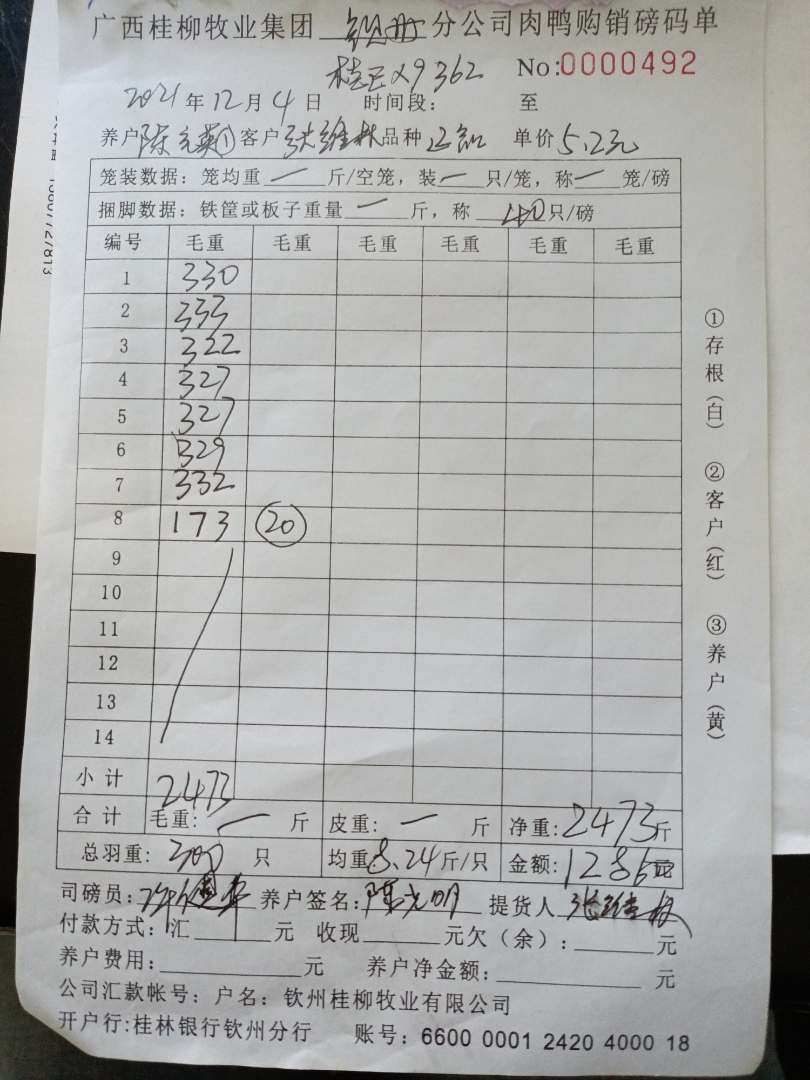 广西桂柳牧业集团 分公司肉鸭购销磅码单
桂 X9362 No:0000492
2021年12月4日 时间段: 至
养户 陈 ① 客户 张维林 品种 正 单价 5.2元
笼装数据: 笼均重 一 斤/空笼, 装 一 只/笼, 称 一 笼/磅
捆脚数据: 铁筐或板子重量 一 斤, 称 40 只/磅
编号 毛重 毛重 毛重 毛重 毛重 毛重
1 330
2 333
3 322
4 327
5 327
6 329
7 332
8 173 20
9
10
11
12
13
14
小计 2473
合计 毛重: 一 斤 皮重: 一 斤 净重: 2473斤
总羽重: 300 只 均重 8.24斤/只 金额: 1286元
司磅员: 养户签名: 陈 明 提货人 张维林
付款方式: 汇 元 收现 元欠(余): 元
养户费用: 元 养户净金额: 元
公司汇款帐号: 户名: 钦州桂柳牧业有限公司
开户行:桂林银行钦州分行 账号: 6600 0001 2420 4000 18
①存根(白) ②客户(红) ③养户(黄)